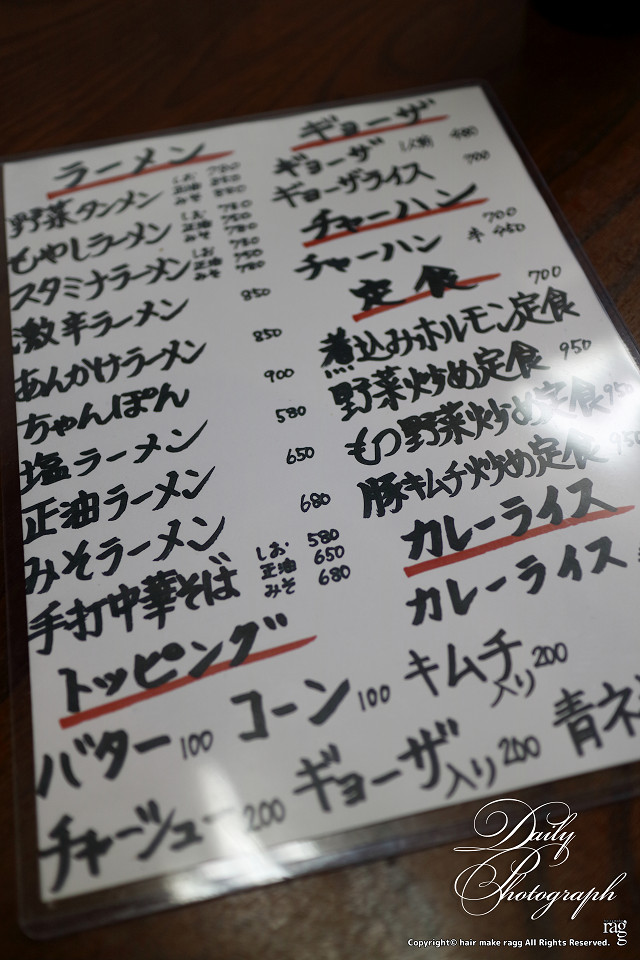 ラーメン
野菜タンメン しお 正油 みそ 850
もやしラーメン しお 正油 みそ 780
スタミナラーメン しお 正油 みそ 780 750 780
激辛ラーメン 850
あんかけラーメン 850
ちゃんぽん 900
塩ラーメン 580
正油ラーメン 650
みそラーメン 680
手打中華そば しお 580 正油 650 みそ 680
トッピング
バター 100 コーン 100 キムチ入り 200
チャーシュー 200 ギョーザ入り 200 青ネ
ギョーザ
ギョーザ
ギョーザライス 700
チャーハン
チャーハン 700 半 450
定食
煮込みホルモン定食 700
野菜炒め定食 950
もつ野菜炒め定食 950
豚キムチ炒め定食 950
カレーライス
カレーライス
Daily Photograph
ragg
Copyright© hair make ragg All Rights Reserved.